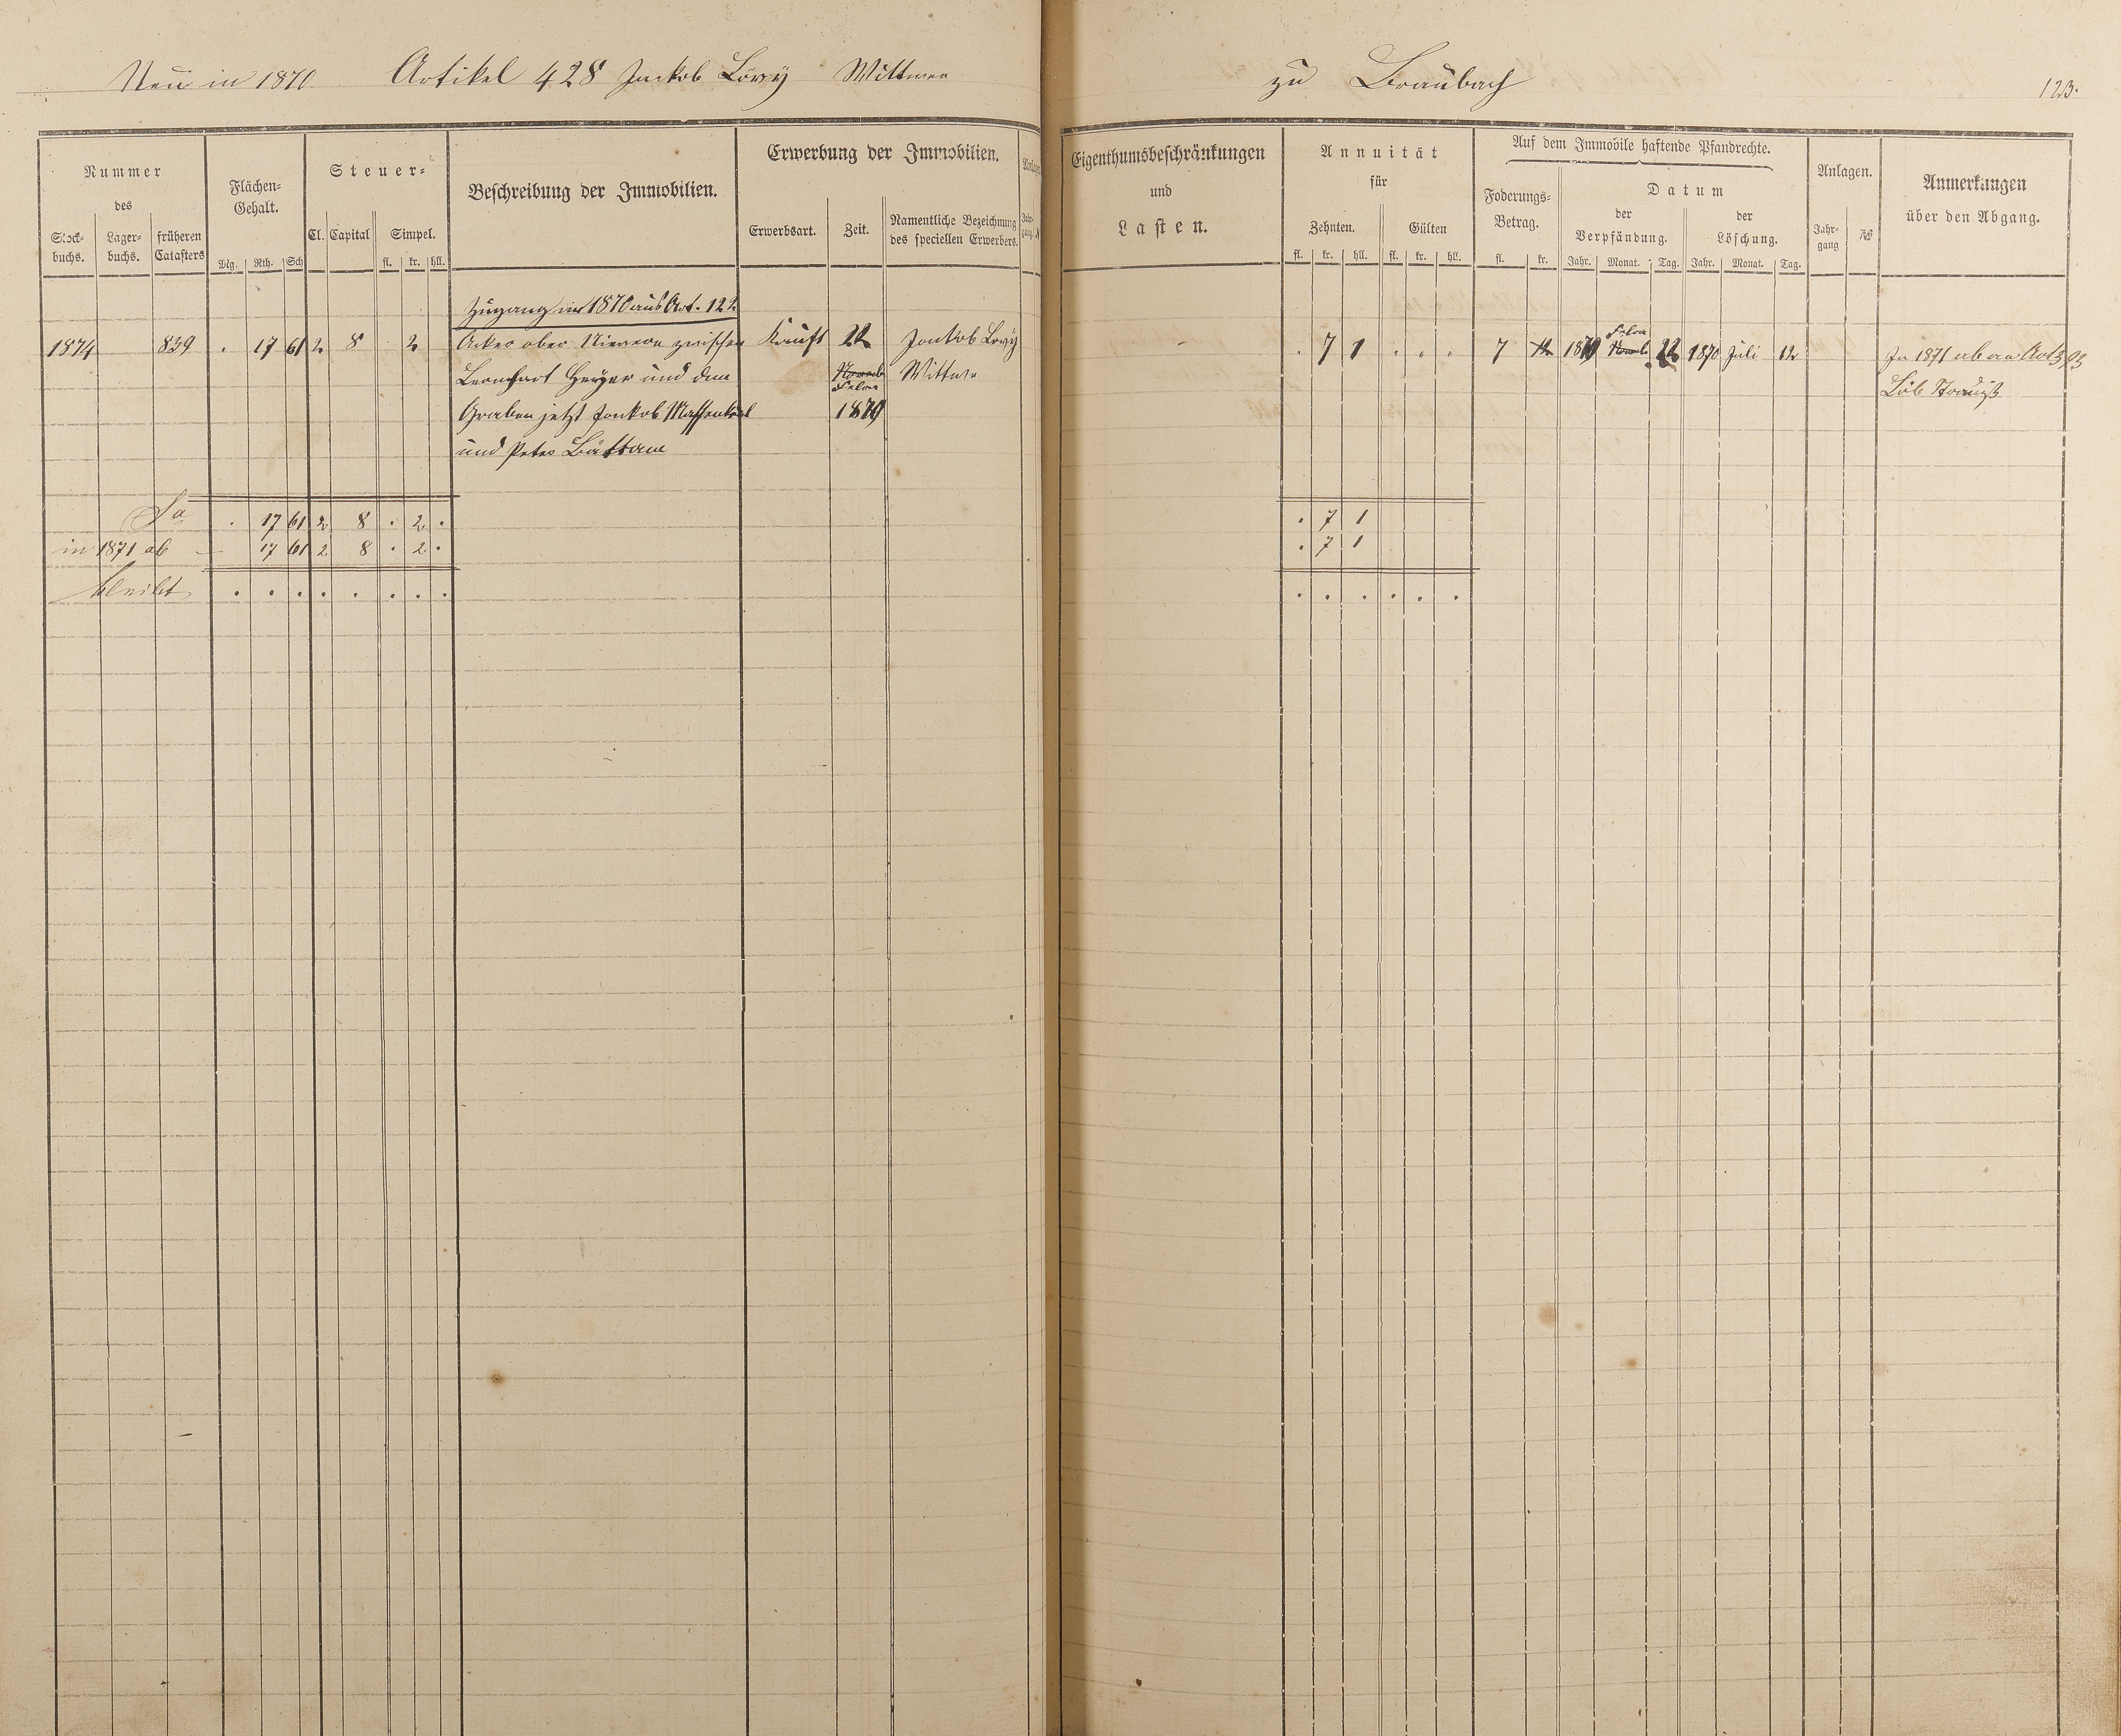 Neu in 1870. Artikel 428 Jackob Löwy Wittwe zu Braubach 123.
Nummer
des
Stock-
buchs.
Lager-
buchs.
früheren
Catasters
Flächen-
Gehalt.
Mg. Rth. Sch
Steuer-
Cl. Capital Simpel.
fl. kr. hll.
Beschreibung der Immobilien.
Erwerbung der Immobilien.
Erwerbsart. Zeit.
Namentliche Bezeichnung
des speciellen Erwerbers.
Eigenthumsbeschränkungen
und
Lasten.
Annuität
für
Zehnten. Gülten
fl. kr. hll. fl. kr. hll.
Auf dem Immobile haftende Pfandrechte.
Foderungs-
Betrag.
fl. kr.
Datum
der
Verpfändung.
der
Löschung.
Jahr. Monat. Tag. Jahr. Monat. Tag.
Anlagen.
Jahr-
gang
№
Anmerkungen
über den Abgang.
Zugang in 1870 aus Art. 122
1874 839 . 17 61 2 8 2 Acker ober Nievern zwischen Kauft 22 Jackob Löwy . 7 1 . . . 7 12 1870 Febr Novb 22 1870 Juli 12 In 1871 ab an Art 393
Leonhart Heyer und dem Novb Febr Wittwe Löb Strauß
Graben jetzt Jackob 1870
und Peter
Sa . 17 61 2 8 . 2 . . 7 1
in 1871 ab — 17 61 2 8 . 2 . . 7 1
bleibt . . . . . . . . . . . . . .